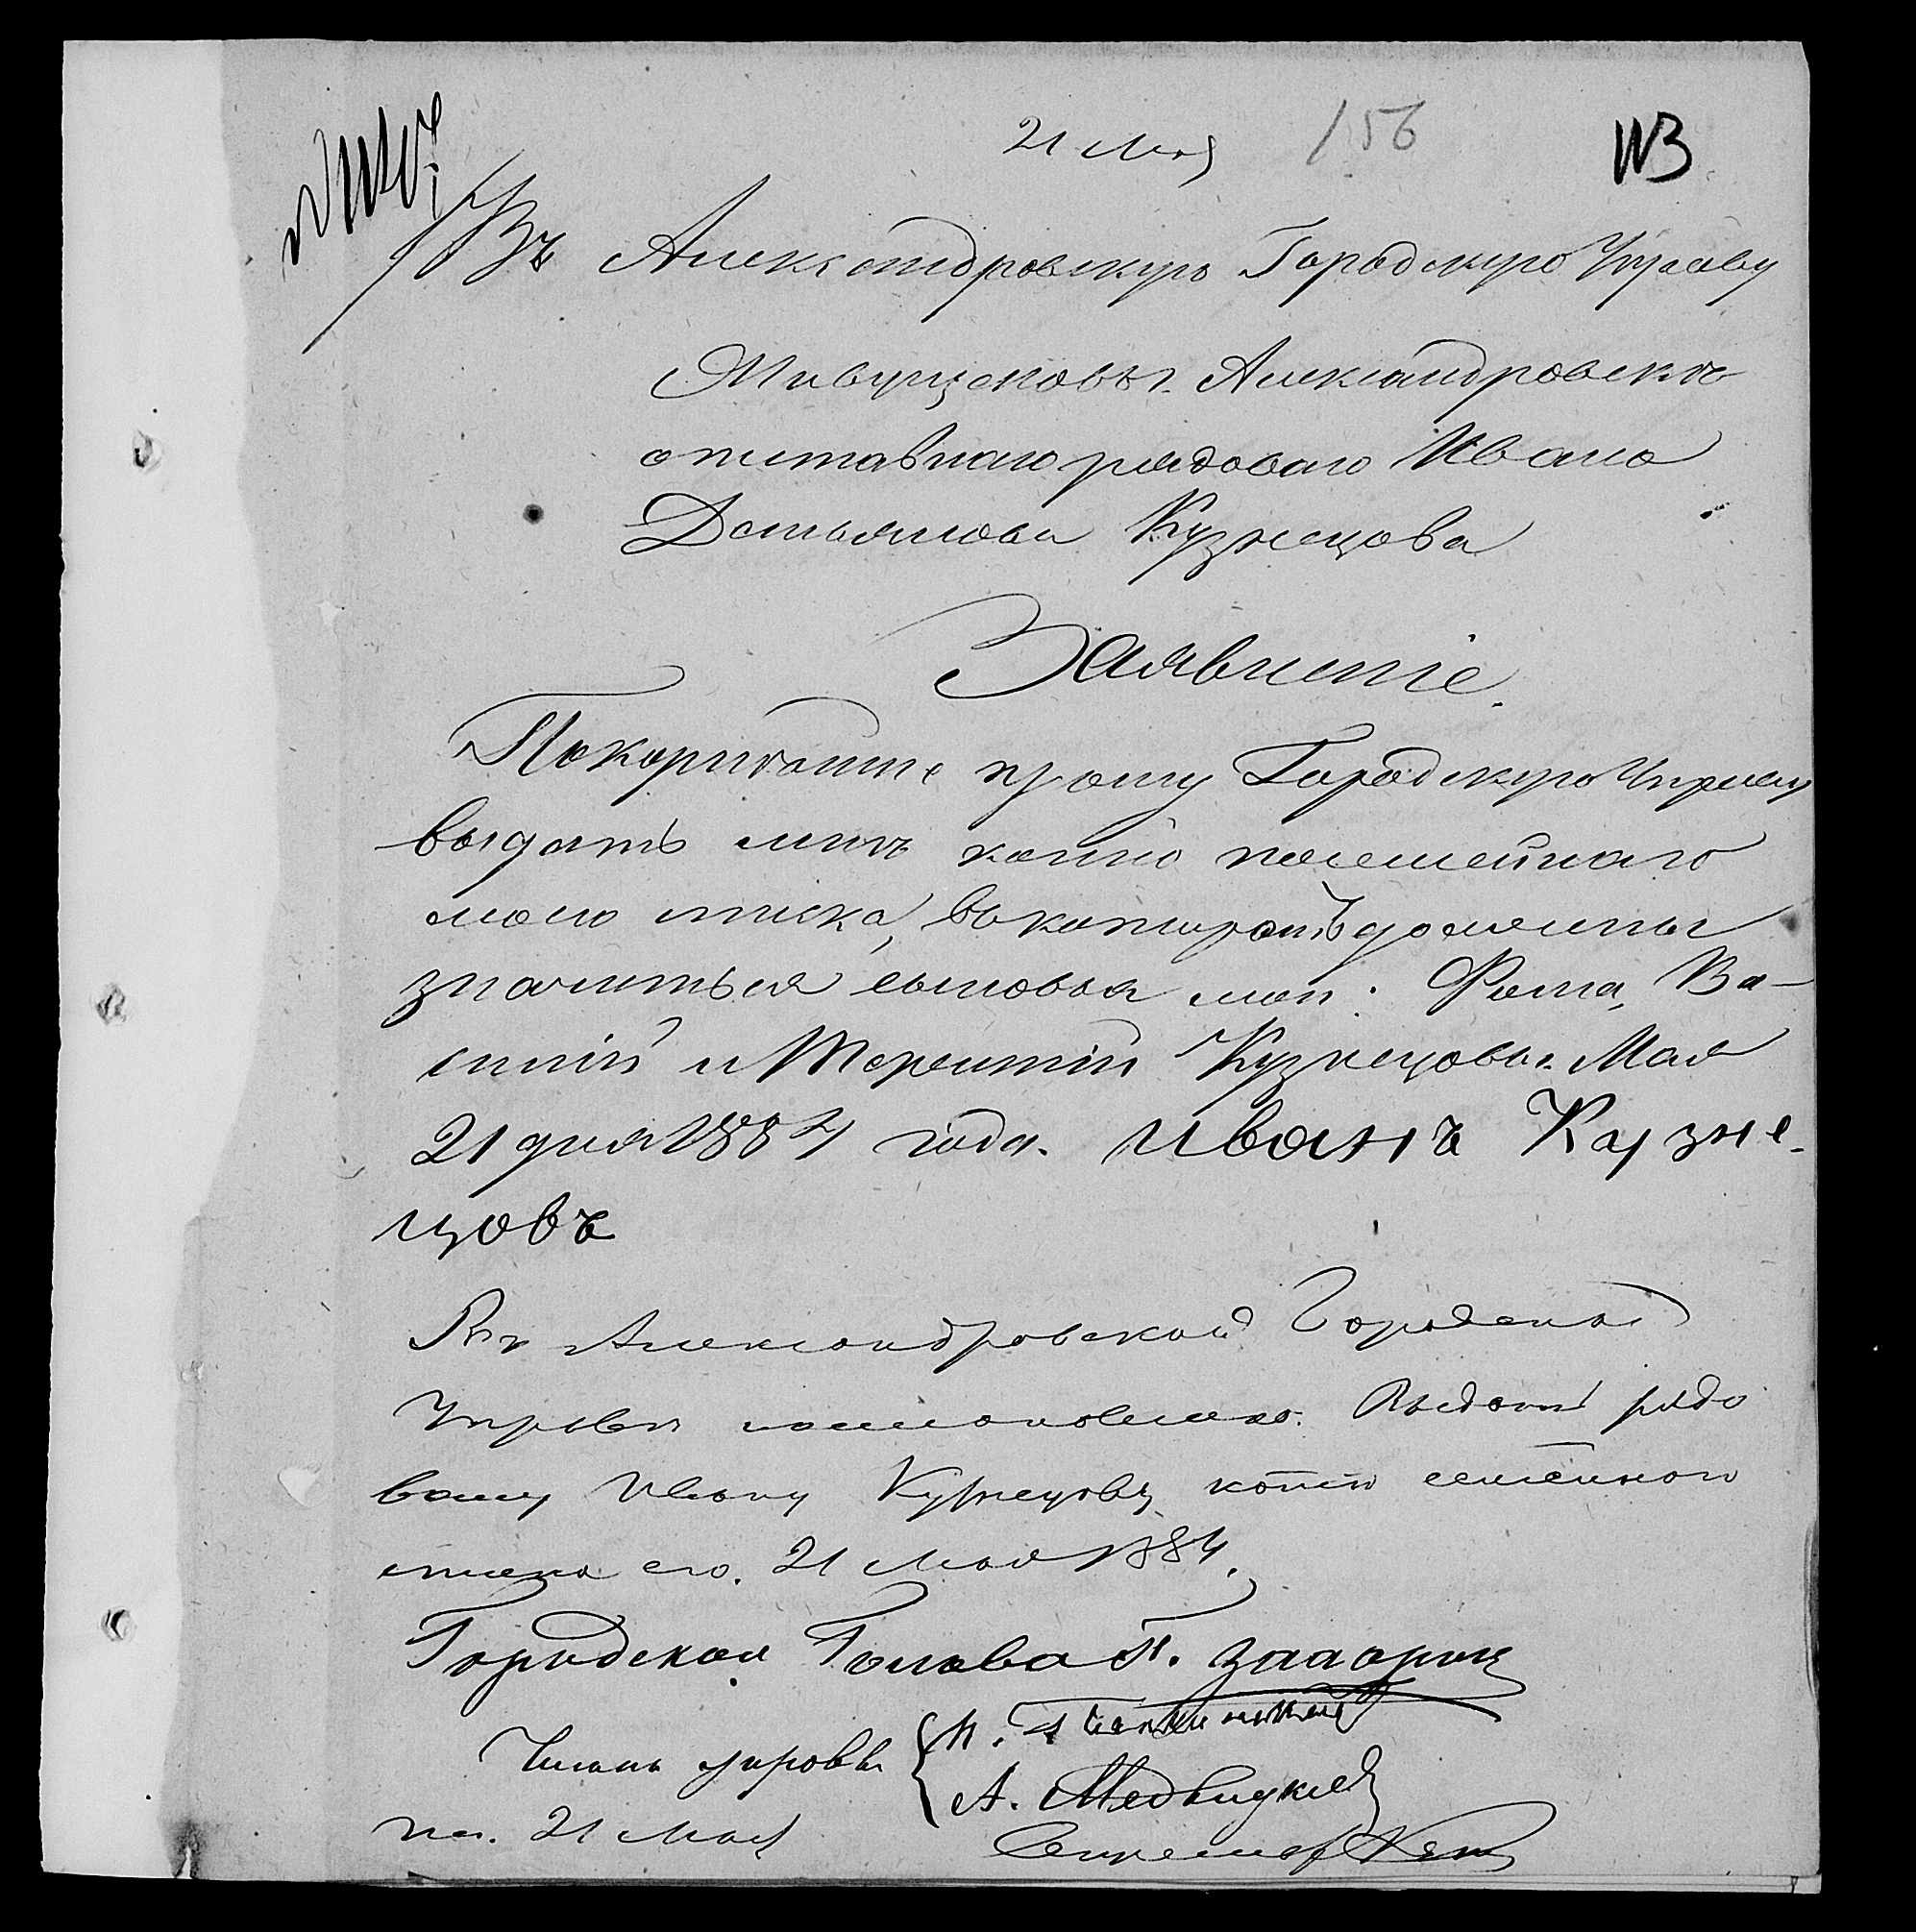 21 Мая 156 113
Въ Александровскую Городскую Управу
Живущаго въ г. Александровскѣ
отставнаго рядоваго Ивана
Демьянова Кузнецова
Заявленіе.
Покорнѣйше прошу Городскую Управу
выдать мнѣ копію посемейнаго
моего списка, въ которомъ должны
значиться сыновья мои: Фома, Ва-
силій и Терентій Кузнецовы. Мая
21 дня 1884 года. иванъ Кузне-
цовъ
Въ Александровской Городской
Управѣ постановлено: Выдать рядо
вому Ивану Кузнецову копію семейнаго
списка его. 21 Мая 1884.
Городская Голова П.
Члены управы
А. Медвидкив
21 Мая
Секретарь